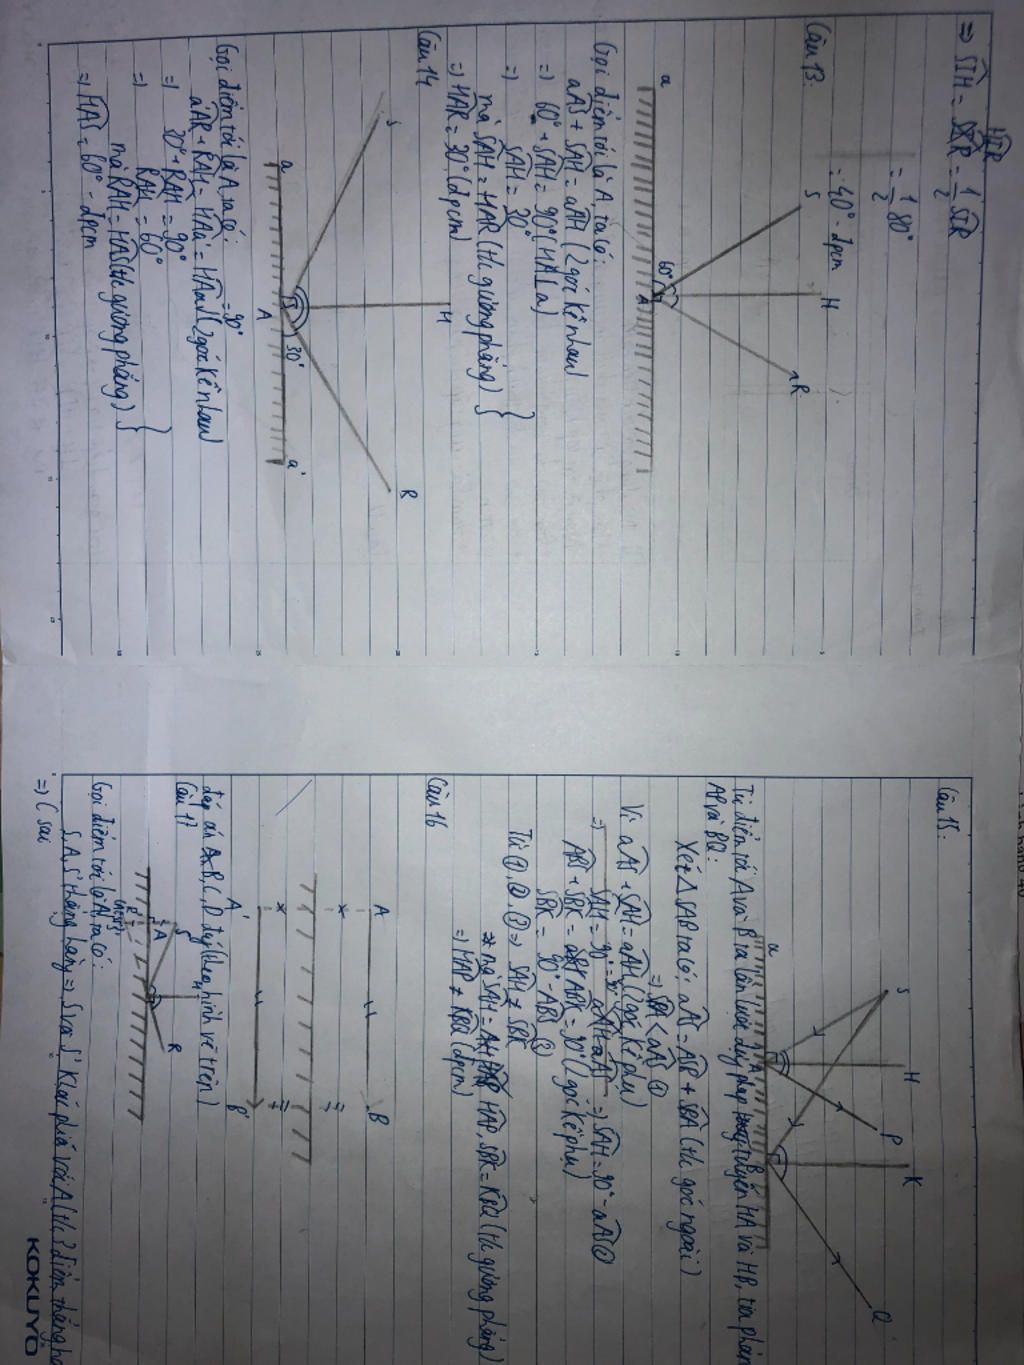 HIR
=> SIH = SIR/2 = 1/2 SIR
= 1/2 80°
= 40° - đpcm
Câu 13:
S
H
R
60°
a
A
Gọi điểm tới là A, ta có:
aAS + SAH = aAH (2 góc kề nhau)
=> 60° + SAH = 90° (HA⊥a)
=> SAH = 30°
mà SAH = HAR (t/c gương phẳng) }
=> HAR = 30° (đpcm)
Câu 14
S
H
R
a
A
30°
a'
Gọi điểm tới là A, ta có:
= 90°
a'AR + RAH = HAa' = HAa' (2 góc kề nhau)
=> 30° + RAH = 90°
=> RAH = 60°
mà RAH = HAS (t/c gương phẳng) }
=> HAS = 60° - đpcm
Câu 15:
S
H
P
K
Q
a
A
B
Từ điểm tới A và B ta lần lượt dựng pháp tuyến HA và HB, tia phản
AP và BQ:
Xét △SAB ta có: aAS = ASB + SBA (t/c góc ngoài)
=> SBA < aAS ①
Vì aAS + SAH = aAH (2 góc kề nhau)
=> SAH = 90° - aAS => SAH = 90° - aAS ②
ABS + SBK = ABK = 90° (góc kề phụ)
SBK = 90° - ABS ③
Từ ①, ②, ③ => SAH ≠ SBK
mà SAH = HAP, SBK = KBQ (t/c gương phẳng)
=> HAP ≠ KBQ (đpcm)
Câu 16
A
B
A'
B'
đáp án A, B, C, D đúng (theo hình vẽ trên)
Câu 17
S
A
R
Gọi điểm tới là A, ta có:
S, A, S' thẳng hàng => S và S' khác phía với A (t/c 3 điểm thẳng
=> C sai
KOKUYO